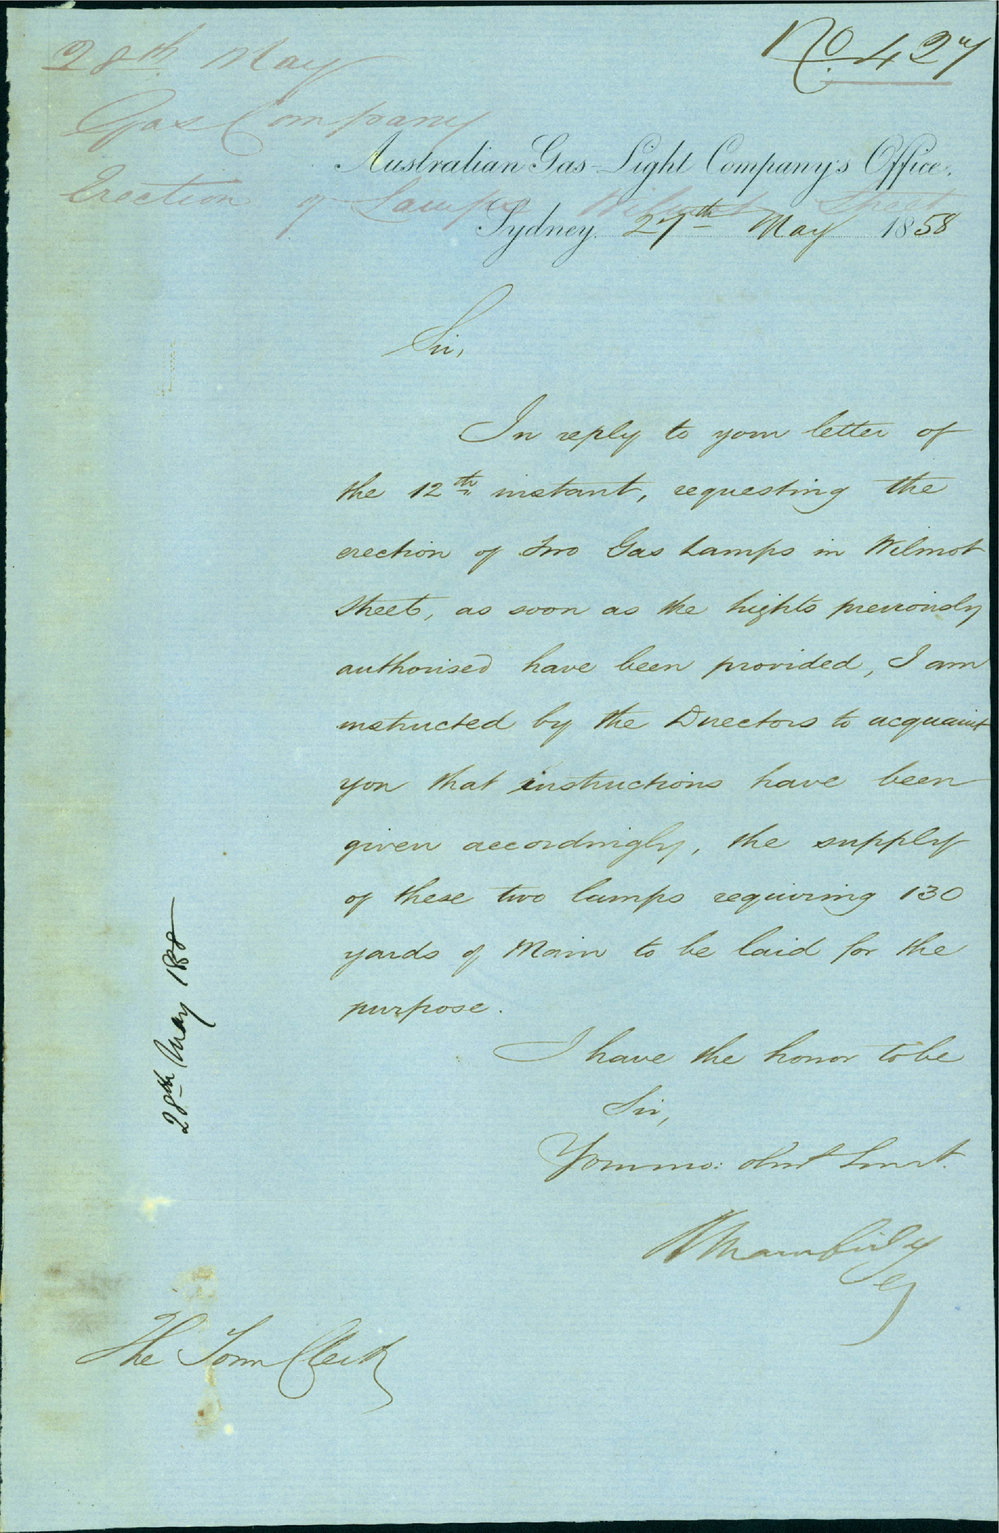 No. 427
28th May
Gas Company
Erection of Lamps Wilmot Street
Australian Gas-Light Company's Office,
Sydney. 27th May 1858
Sir,
In reply to your letter of
the 12th instant, requesting the
erection of Two Gas Lamps in Wilmot
Street, as soon as the lights previously
authorised have been provided, I am
instructed by the Directors to acquaint
you that instructions have been
given accordingly, the supply
of these two lamps requiring 130
yards of Main to be laid for the
purpose.
I have the honor to be
Sir,
Your mo: obnt Servt.
The Town Clerk
28th May 1858